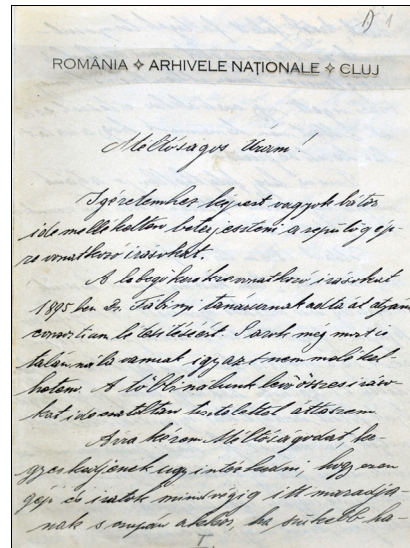 1
ROMÂNIA ✧ ARHIVELE NAȚIONALE ✧ CLUJ
Méltóságos Uram!
Igéretemhez képest vagyok bátor
idemellékelten beterjeszteni a repülőgép-
re vonatkozó írásokat.
A lobogó kerekre vonatkozó írásokat
1895 ben Dr. Fabinyi tanárnak adta át atyám
consortium létesítésért. S azok még most is
talán nála vannak, így azt nem mellékel-
hetem. A többi nálunk levő összes irato-
kat ide csatoltan tisztelettel átteszem
Arra kérem Méltóságodat ke-
gyeskedjenek úgy intézkedni, hogy ezen
gép és iratok mindvégig itt maradja-
nak s csupán akkor, ha szűkebb ha-
I.